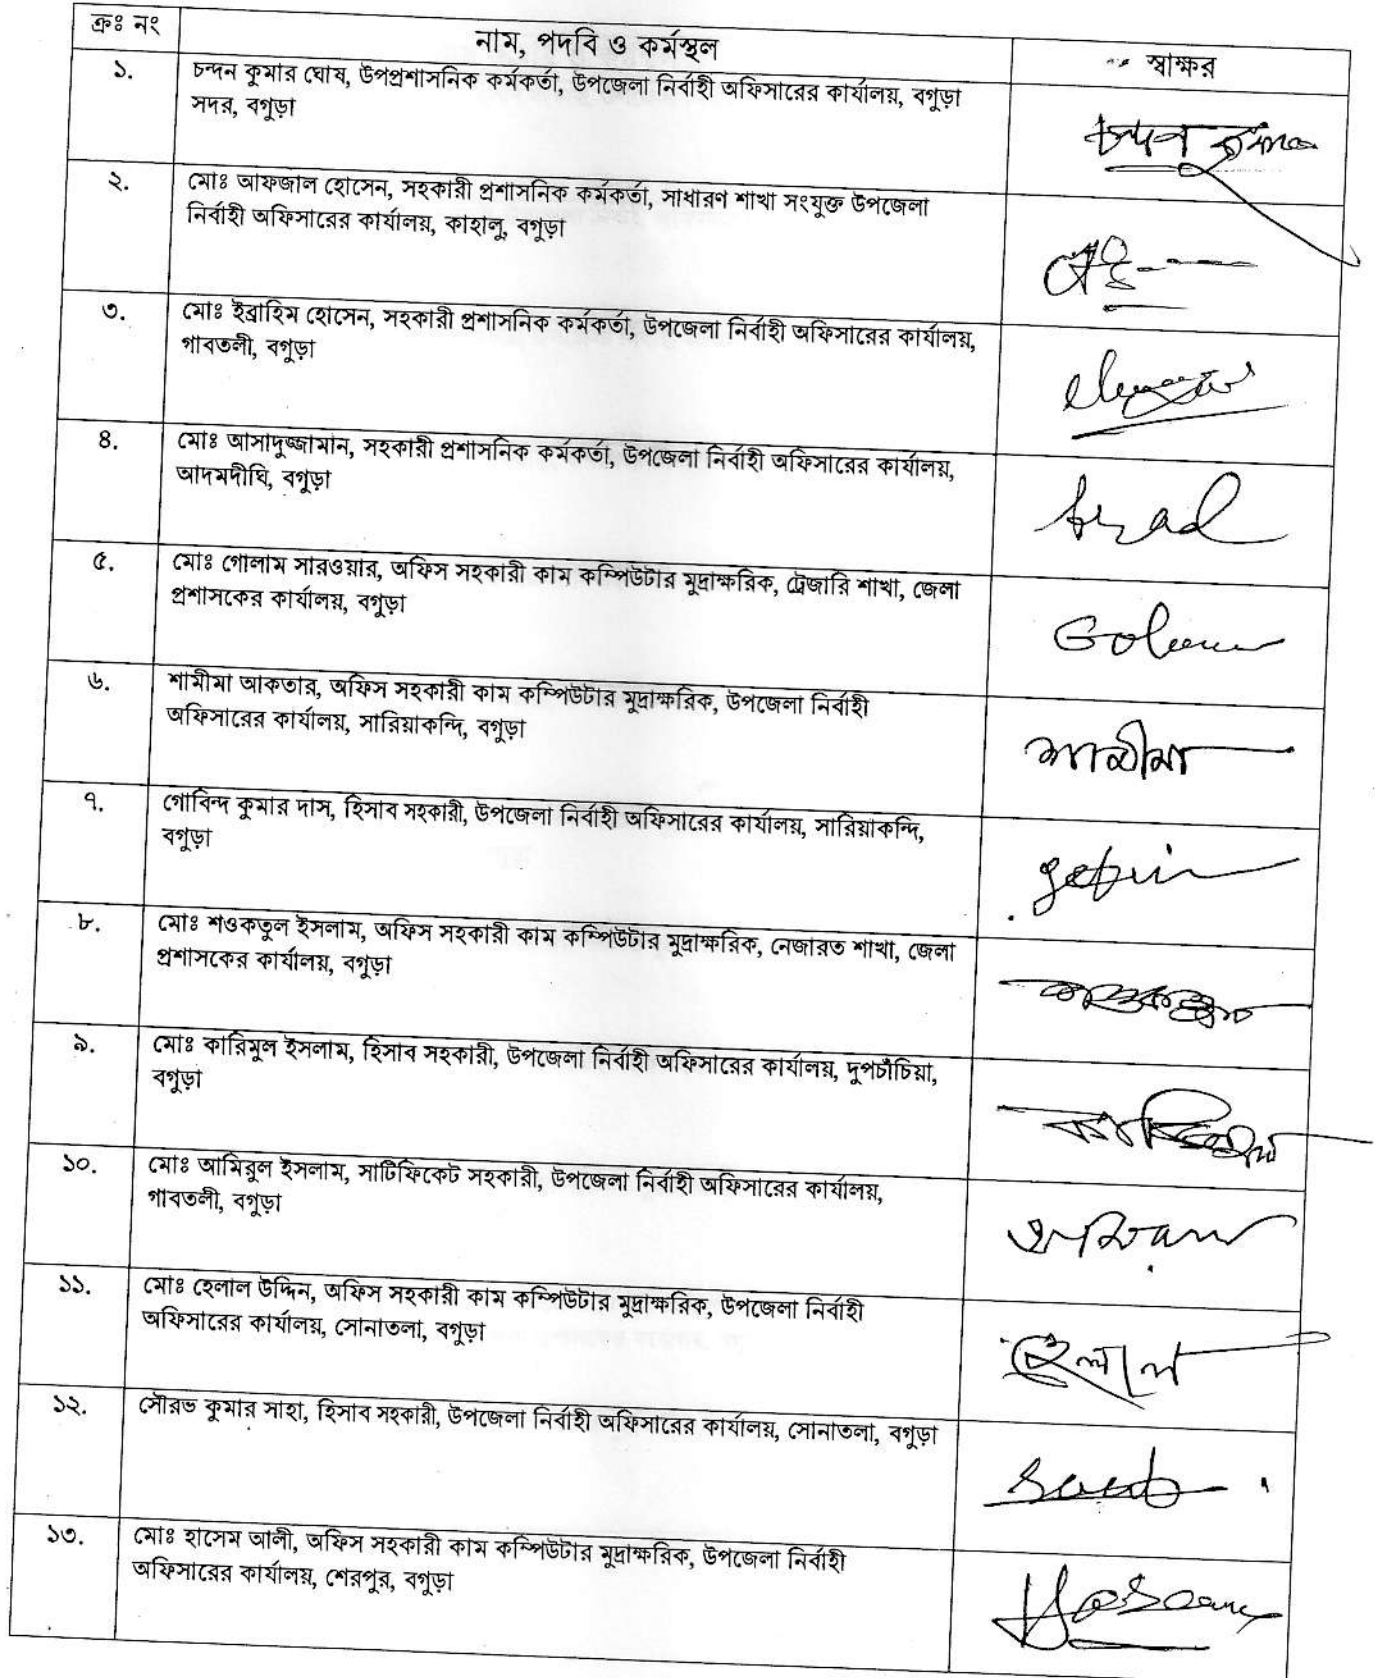 ক্রঃ নং
নাম, পদবি ও কর্মস্থল
স্বাক্ষর
১.
চন্দন কুমার ঘোষ, উপপ্রশাসনিক কর্মকর্তা, উপজেলা নির্বাহী অফিসারের কার্যালয়, বগুড়া
সদর, বগুড়া
২.
মোঃ আফজাল হোসেন, সহকারী প্রশাসনিক কর্মকর্তা, সাধারণ শাখা সংযুক্ত উপজেলা
নির্বাহী অফিসারের কার্যালয়, কাহালু, বগুড়া
৩.
মোঃ ইব্রাহিম হোসেন, সহকারী প্রশাসনিক কর্মকর্তা, উপজেলা নির্বাহী অফিসারের কার্যালয়,
গাবতলী, বগুড়া
৪.
মোঃ আসাদুজ্জামান, সহকারী প্রশাসনিক কর্মকর্তা, উপজেলা নির্বাহী অফিসারের কার্যালয়,
আদমদীঘি, বগুড়া
৫.
মোঃ গোলাম সারওয়ার, অফিস সহকারী কাম কম্পিউটার মুদ্রাক্ষরিক, ট্রেজারি শাখা, জেলা
প্রশাসকের কার্যালয়, বগুড়া
৬.
শামীমা আকতার, অফিস সহকারী কাম কম্পিউটার মুদ্রাক্ষরিক, উপজেলা নির্বাহী
অফিসারের কার্যালয়, সারিয়াকন্দি, বগুড়া
শামীমা
৭.
গোবিন্দ কুমার দাস, হিসাব সহকারী, উপজেলা নির্বাহী অফিসারের কার্যালয়, সারিয়াকন্দি,
বগুড়া
৮.
মোঃ শওকতুল ইসলাম, অফিস সহকারী কাম কম্পিউটার মুদ্রাক্ষরিক, নেজারত শাখা, জেলা
প্রশাসকের কার্যালয়, বগুড়া
৯.
মোঃ কারিমুল ইসলাম, হিসাব সহকারী, উপজেলা নির্বাহী অফিসারের কার্যালয়, দুপচাঁচিয়া,
বগুড়া
১০.
মোঃ আমিরুল ইসলাম, সার্টিফিকেট সহকারী, উপজেলা নির্বাহী অফিসারের কার্যালয়,
গাবতলী, বগুড়া
১১.
মোঃ হেলাল উদ্দিন, অফিস সহকারী কাম কম্পিউটার মুদ্রাক্ষরিক, উপজেলা নির্বাহী
অফিসারের কার্যালয়, সোনাতলা, বগুড়া
হেলাল
১২.
সৌরভ কুমার সাহা, হিসাব সহকারী, উপজেলা নির্বাহী অফিসারের কার্যালয়, সোনাতলা, বগুড়া
১৩.
মোঃ হাসেম আলী, অফিস সহকারী কাম কম্পিউটার মুদ্রাক্ষরিক, উপজেলা নির্বাহী
অফিসারের কার্যালয়, শেরপুর, বগুড়া